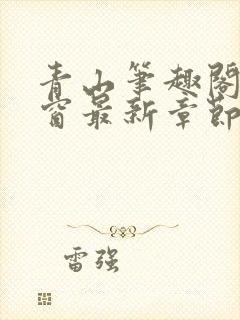 青山筆趣閣
窗最新章節
雷强